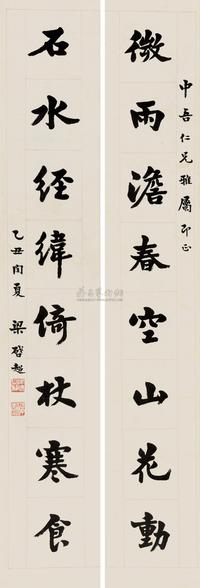 中吾仁兄雅屬即正
微雨澹春空山花動
石水經緯倚杖寒食
乙丑閏夏 梁啓超